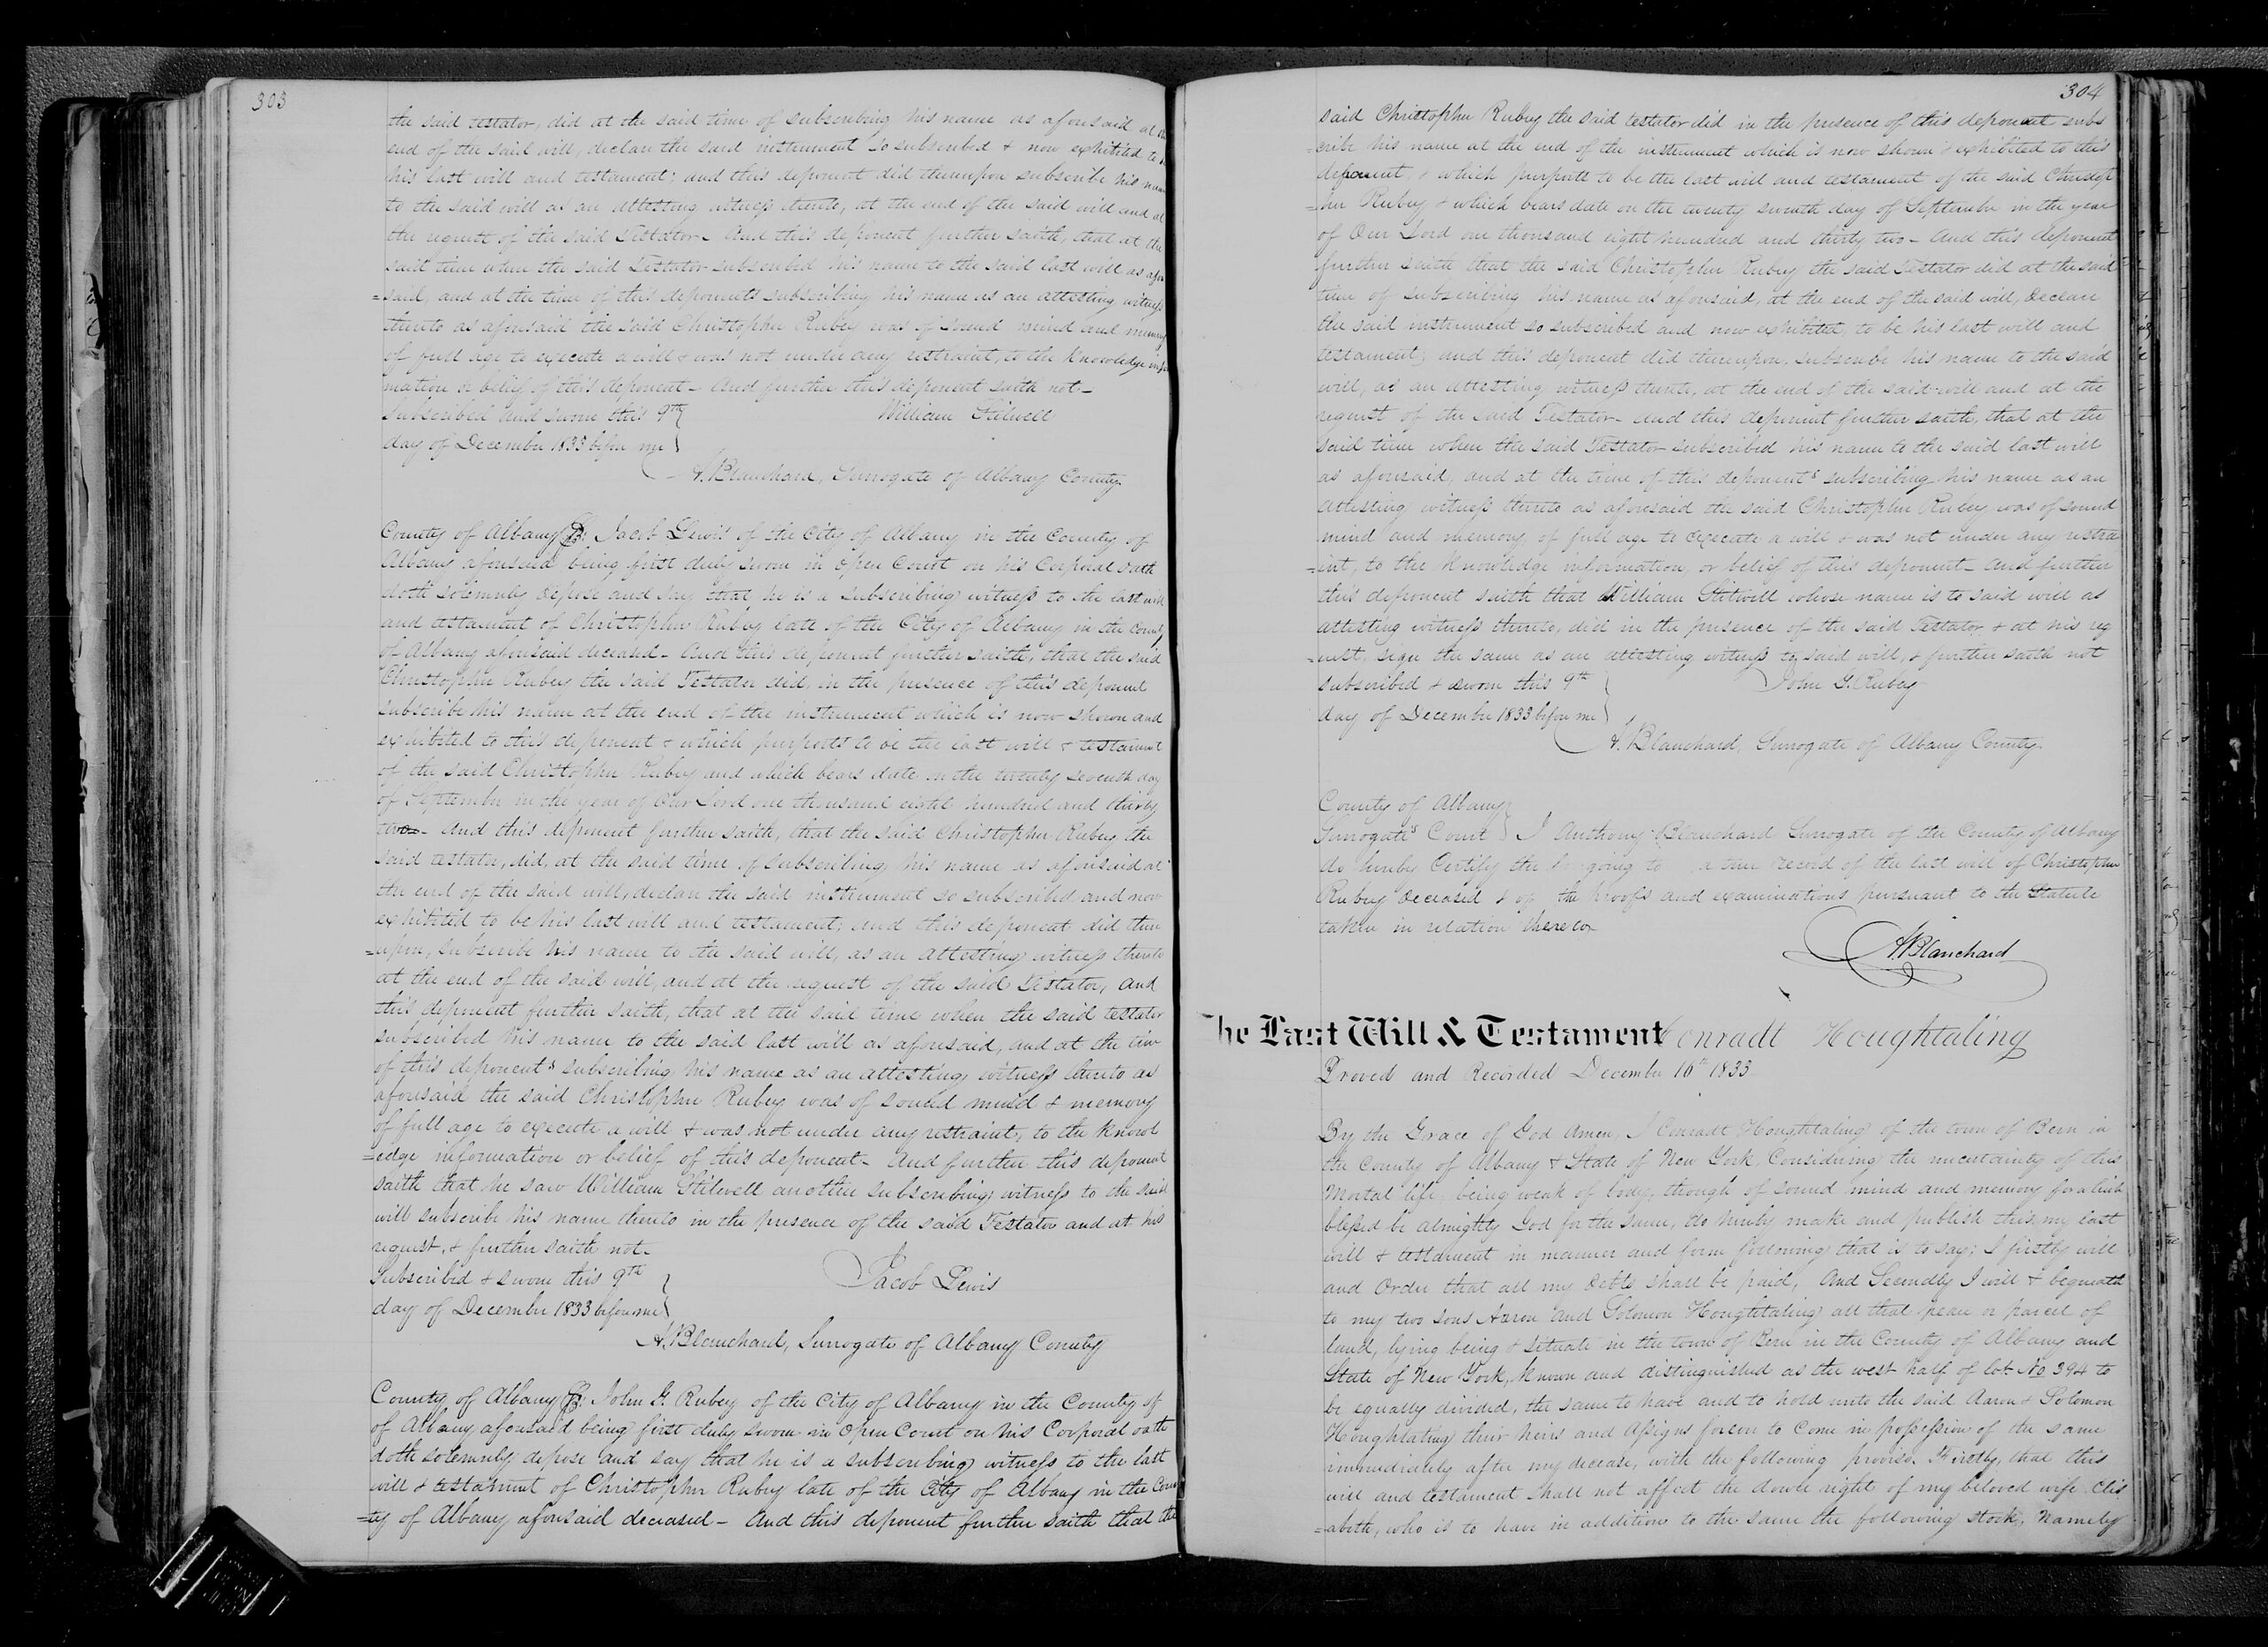 303
the said testator, did at the said time of subscribing his name as aforesaid at the
end of the said will, declare the said instrument so subscribed & now exhibited, to be
his last will and testament; and this deponent did thereupon subscribe his name
to the said will as an attesting witness thereto, at the end of the said will and at
the request of the said Testator - And this deponent further saith, that at the
said time when the said Testator subscribed his name to the said last will as afore
=said, and at the time of this deponents subscribing his name as an attesting witness
thereto as aforesaid the said Christopher Rubey was of sound mind and memory
of full age to execute a will & was not under any restraint, to the knowledge infor
mation or belief of this deponent - And further this deponent saith not -
Subscribed and sworn this 9th William Stilwell
day of December 1833 before me
A. Blanchard, Surrogate of Albany County
County of Albany Ss: Jacob Lewis of the City of Albany in the County of
Albany aforesaid being first duly sworn in open Court on his Corporal oath
doth solemnly depose and say that he is a subscribing witness to the last will
and testament of Christopher Rubey late of the City of Albany in the County
of Albany aforesaid deceased - And this deponent further saith, that the said
Christopher Rubey the said Testator did, in the presence of this deponent
subscribe his name at the end of the instrument which is now shown and
exhibited to this deponent & which purports to be the last will & testament
of the said Christopher Rubey and which bears date on the twenty seventh day
of September in the year of Our Lord one thousand eight hundred and thirty
two - And this deponent further saith, that the said Christopher Rubey the
said testator, did, at the said time of subscribing his name as aforesaid at
the end of the said will, declare the said instrument so subscribed and now
exhibited to be his last will and testament; and this deponent did there
=upon, subscribe his name to the said will, as an attesting witness thereto
at the end of the said will, and at the request of the said Testator, And
this deponent further saith, that at the said time when the said testator
subscribed his name to the said last will as aforesaid, and at the time
of this deponent's subscribing his name as an attesting witness thereto as
aforesaid the said Christopher Rubey was of sound mind & memory
of full age to execute a will & was not under any restraint, to the knowl
=edge information or belief of this deponent - And further this deponent
saith that he saw William Stilwell another subscribing witness to the said
will subscribe his name thereto in the presence of the said Testator and at his
request, & further saith not -
Subscribed & sworn this 9th Jacob Lewis
day of December 1833 before me
A. Blanchard, Surrogate of Albany County
County of Albany Ss: John G. Rubey of the City of Albany in the County of
of Albany aforesaid being first duly sworn in Open Court on his Corporal oath
doth solemnly depose and say that he is a subscribing witness to the last
will & testament of Christopher Rubey late of the City of Albany in the Coun
=ty of Albany aforesaid deceased - And this deponent further saith that the
304
said Christopher Rubey the said testator did in the presence of this deponent subs
=cribe his name at the end of the instrument which is now shown & exhibited to this
deponent, & which purports to be the last will and testament of the said Christop
=her Rubey & which bears date on the twenty seventh day of September in the year
of Our Lord one thousand eight hundred and thirty two - And this deponent
further saith that the said Christopher Rubey the said Testator did at the said
time of subscribing his name as aforesaid, at the end of the said will, declare
the said instrument so subscribed and now exhibited, to be his last will and
testament; and this deponent did thereupon, subscribe his name to the said
will, as an attesting witness thereto, at the end of the said will and at the
request of the said Testator - And this deponent further saith, that at the
said time when the said Testator subscribed his name to the said last will
as aforesaid, and at the time of this deponent's subscribing his name as an
attesting witness thereto as aforesaid the said Christopher Rubey was of sound
mind and memory of full age to execute a will & was not under any restra
=int, to the knowledge information, or belief of this deponent - And further
this deponent saith that William Stilwell whose name is to said will as
attesting witness thereto, did in the presence of the said Testator & at his req
=uest, sign the same as an attesting witness to said will, & further saith not
subscribed & sworn this 9th John G. Rubey
day of December 1833 before me
A. Blanchard, Surrogate of Albany County
County of Albany
Surrogate's Court I Anthony Blanchard Surrogate of the County of Albany
do hereby Certify the going to a true record of the last will of Christopher
Rubey deceased & of the proofs and examinations pursuant to the Statute
taken in relation thereto
A. Blanchard
The Last Will & Testament Conradt Houghtaling
Proved and Recorded December 16th 1833
By the Grace of God Amen, I Conradt Houghtaling of the town of Bern in
the County of Albany & State of New York, Considering the uncertainty of this
Mortal life, being weak of body, though of sound mind and memory for which
blessed be almighty God for the same, do hereby make and publish this my last
will & testament in manner and form following that is to say; I firstly will
and Order that all my debts shall be paid, And Secondly I will & bequeath
to my two sons Aaron and Solomon Houghtaling all that peace or parcel of
land, lying being & situate in the town of Bern in the County of Albany and
State of New York, known and distinguished as the west half of lot No 394 to
be equally divided, the same to have and to hold unto the said Aaron & Solomon
Houghtaling their heirs and Assigns forever to Come in possession of the same
immediately after my decease, with the following proviso. Firstly, that this
will and testament shall not affect the dowle right of my beloved wife Elis
=abeth, who is to have in addition to the same the following stock, Namely